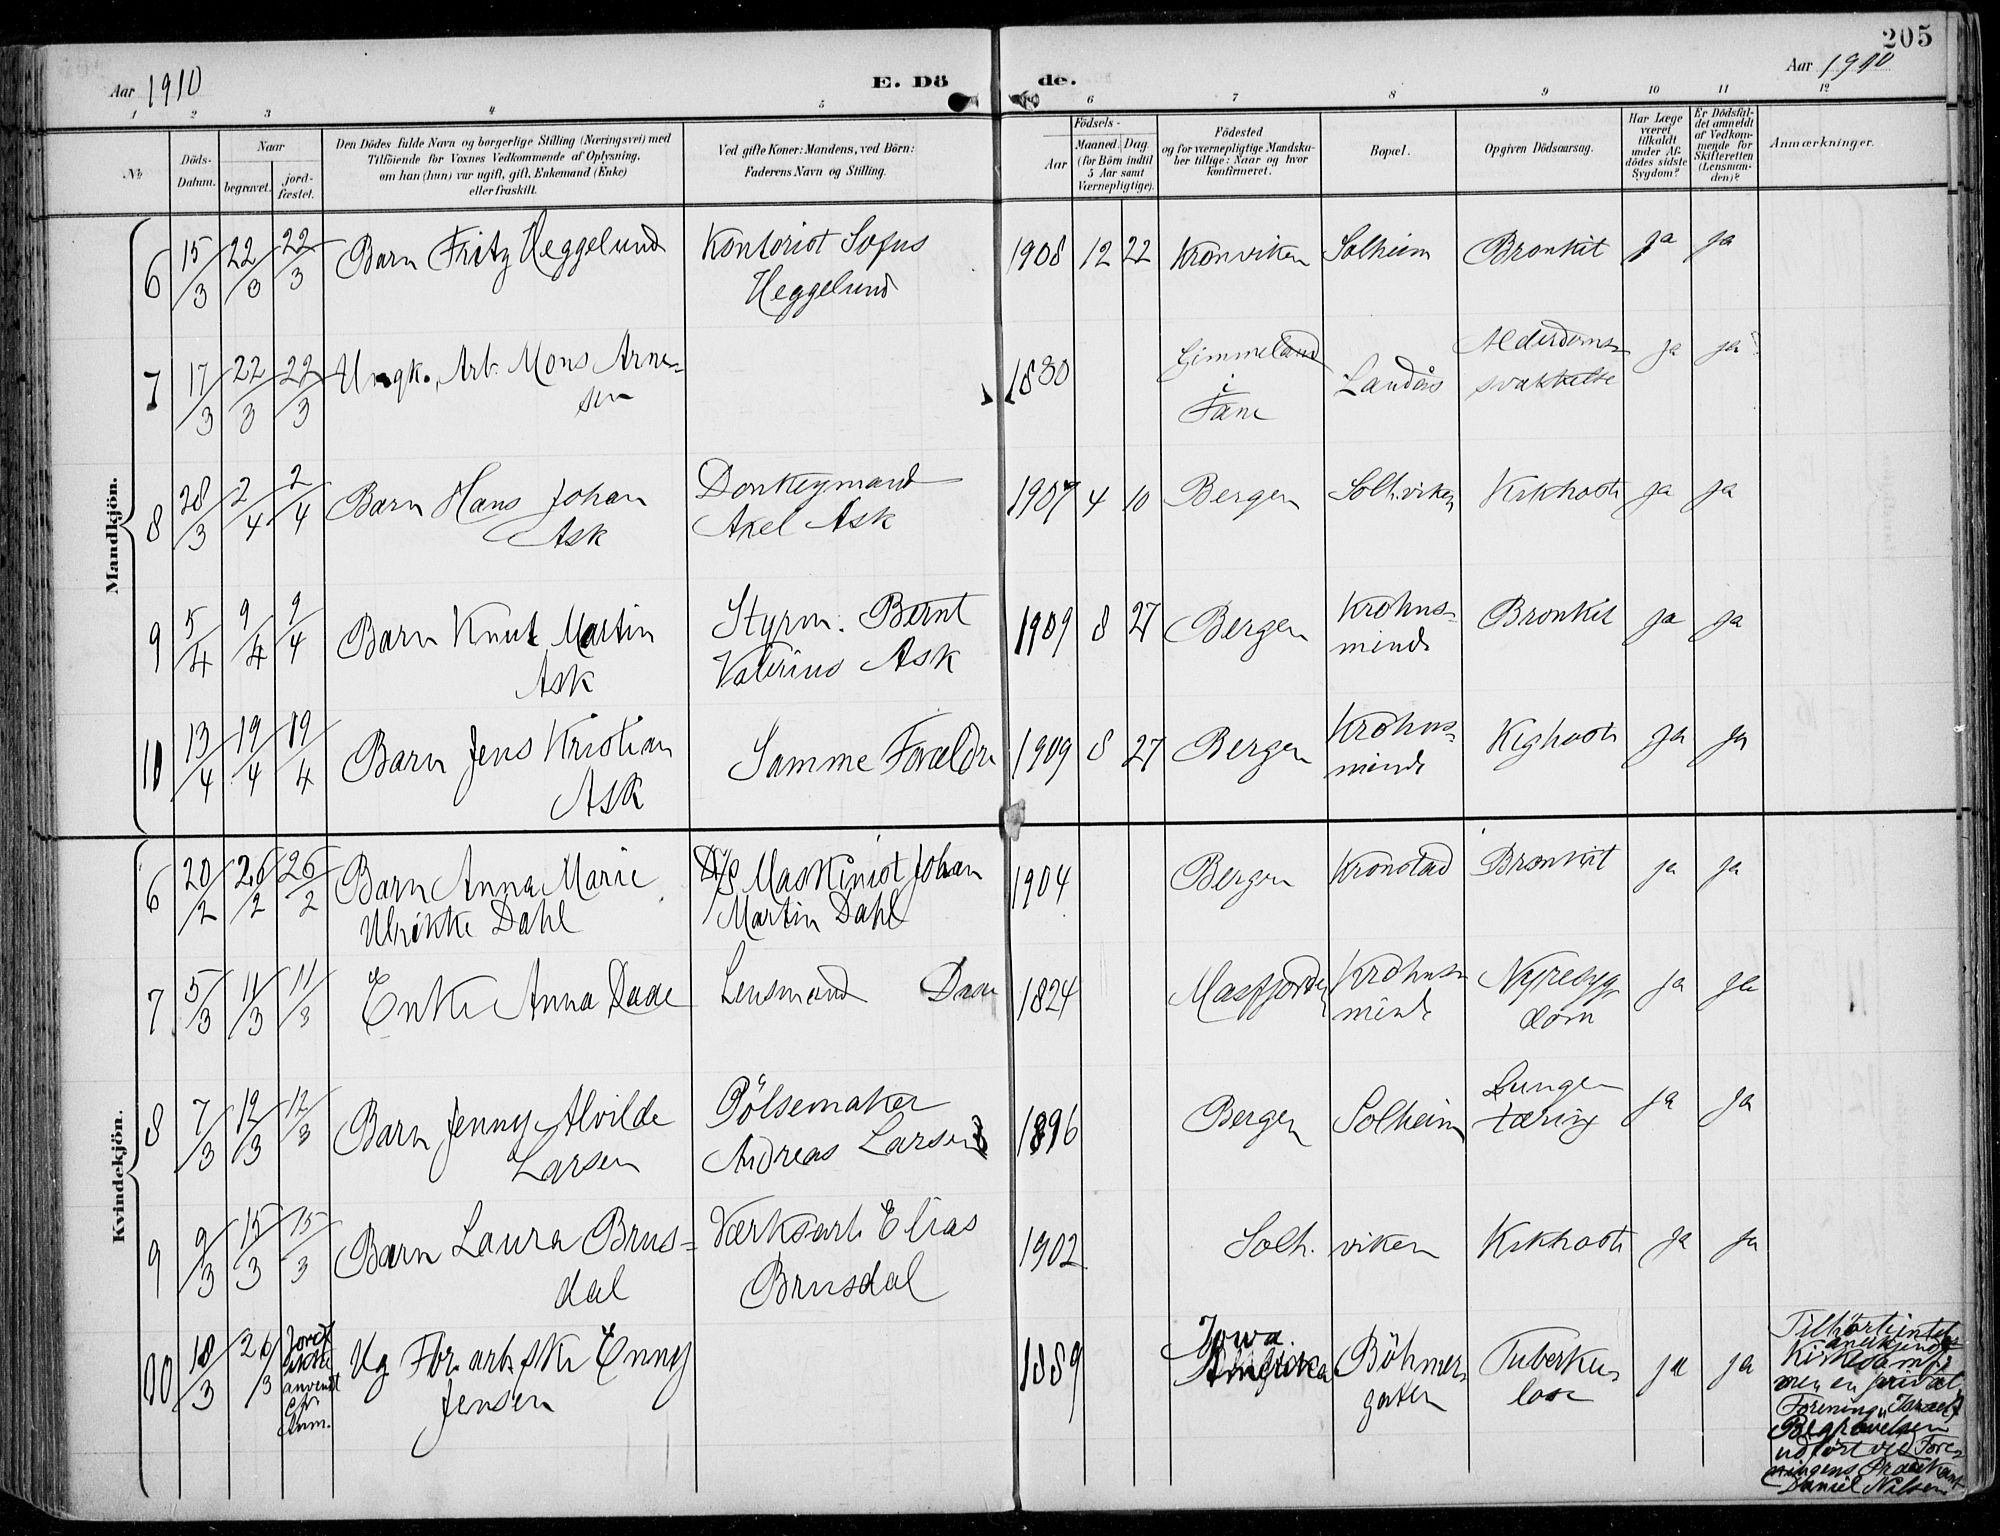 205
Aar 1910
E. Dö
de.
Aar 1910
1 2 3 4 5 6 7 8 9 10 11 12
No
Döds-Datum.
Naar
begravet.
jord-fæstet.
Den Dödes fulde Navn og borgerlige Stilling (Næringsvei) med
Tilföiende for Voxnes Vedkommende af Oplysning,
om han (hun) var ugift, gift, Enkemand (Enke)
eller fraskilt.
Ved gifte Koner: Mandens, ved Börn:
Faderens Navn og Stilling.
Födsels-
Aar
Maaned Dag
(for Börn indtil
5 Aar samt
Værnepligtige).
Födested
og for værnepligtige Mandska-
ber tillige: Naar og hvor
konfirmeret.
Bopæl.
Opgiven Dödsaarsag.
Har Læge
været
tilkaldt
under Af-
dödes sidste
Sygdom?
Er Dödsfal-
det anmeldt
af Vedkom-
mende for
Skifteretten
(Lensman-
den)?
Anmærkninger.
Mandkjön.
6 15/3 22/3 22/3 Barn Fritz Heggelund Kontorist Sofus 1908 12 22 Kronviken Solheim Bronkit Ja Ja
Heggelund
7 17/3 22/3 22/3 Ungk. Arb. Mons Arne- 1830 Gimmeland Landås Alderdoms- Ja Ja
sen i svakkelse
Fane
8 28/3 2/4 2/4 Barn Hans Johan Donkeymand 1907 4 10 Bergen Solh.viken Kikhoste Ja Ja
Ask Axel Ask
9 5/4 9/4 9/4 Barn Knut Martin Styrm. Bernt 1909 8 27 Bergen Krohns- Bronkit Ja Ja
Ask Valerius Ask minde
10 13/4 19/4 19/4 Barn Jens Kristian Samme Forældre 1909 8 27 Bergen Krohns- Kighoste Ja Ja
Ask minde
Kvindekjön.
6 20/2 26/2 26/2 Barn Anna Marie D/S Maskinist Johan 1904 Bergen Kronstad Bronkit Ja Ja
Ulrikke Dahl Martin Dahl
7 5/3 11/3 11/3 Enke Anna Daae Lensmand Daae 1824 Masfjorden Krohns- Nyresyg- Ja Ja
minde dom
8 7/3 12/3 12/3 Barn Jenny Alvilde Pölsemaker 1896 Bergen Solheim Lunge- Ja Ja
Larsen Andreas Larsen tæring
9 9/3 15/3 15/3 Barn Laura Brus- Værksarb. Elias 1902 Solh. viken Kikhoste Ja Ja
dal Brusdal
10 18/3 26/3 Jordf. ikke anvendt cfr. Anm. Ug For.arbske Enny 1889 Iowa. Amerika Böhmer- Tuberku- Ja Ja
Jensen gaten lose
Tilhörte intet
anerkjendt
Kirkesamf.
men en privat
Forening "Israel"
Begravelsen
udfört ved Fore-
ningens Prædikant
Daniel Nilsen